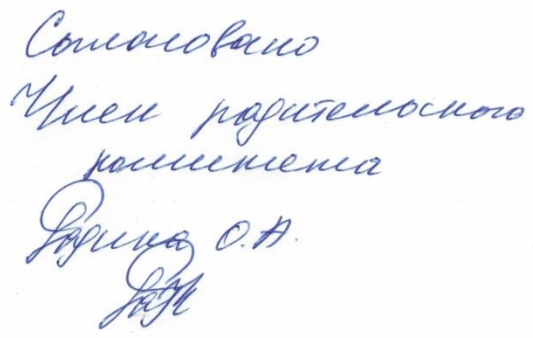 Согласовано
Член родительского
комитета
Родина О.А.